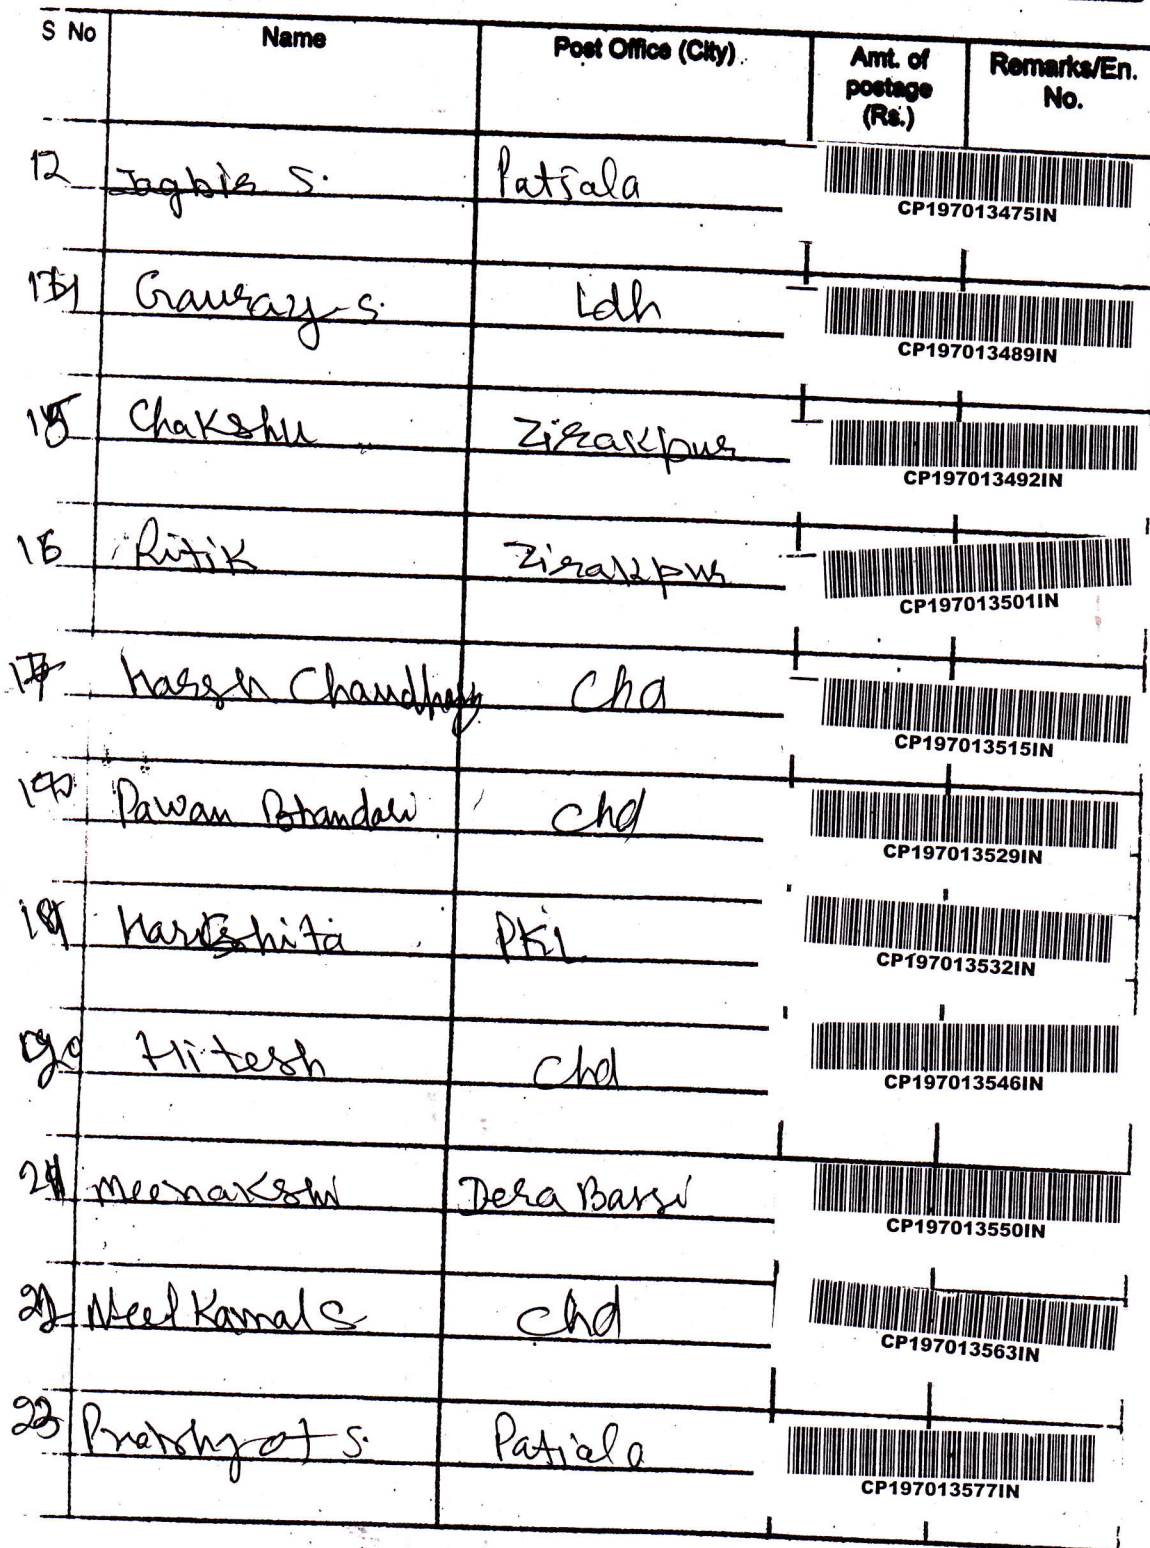 S No Name Post Office (City) Amt. of postage (Rs.) Remarks/En. No.
12 Jagbir S. Patiala CP197013475IN
Gaurav S. Ldh CP197013489IN
15 Chakshu Zirakpur CP197013492IN
16 Ritik Zirakpur CP197013501IN
17 Harsh Chaudhary Chd CP197013515IN
Pawan Bhandari Chd CP197013529IN
19 Harshita PKL CP197013532IN
Hitesh Chd CP197013546IN
21 Meenakshi Dera Bassi CP197013550IN
22 Neel Kamal S Chd CP197013563IN
23 S. Patiala CP197013577IN